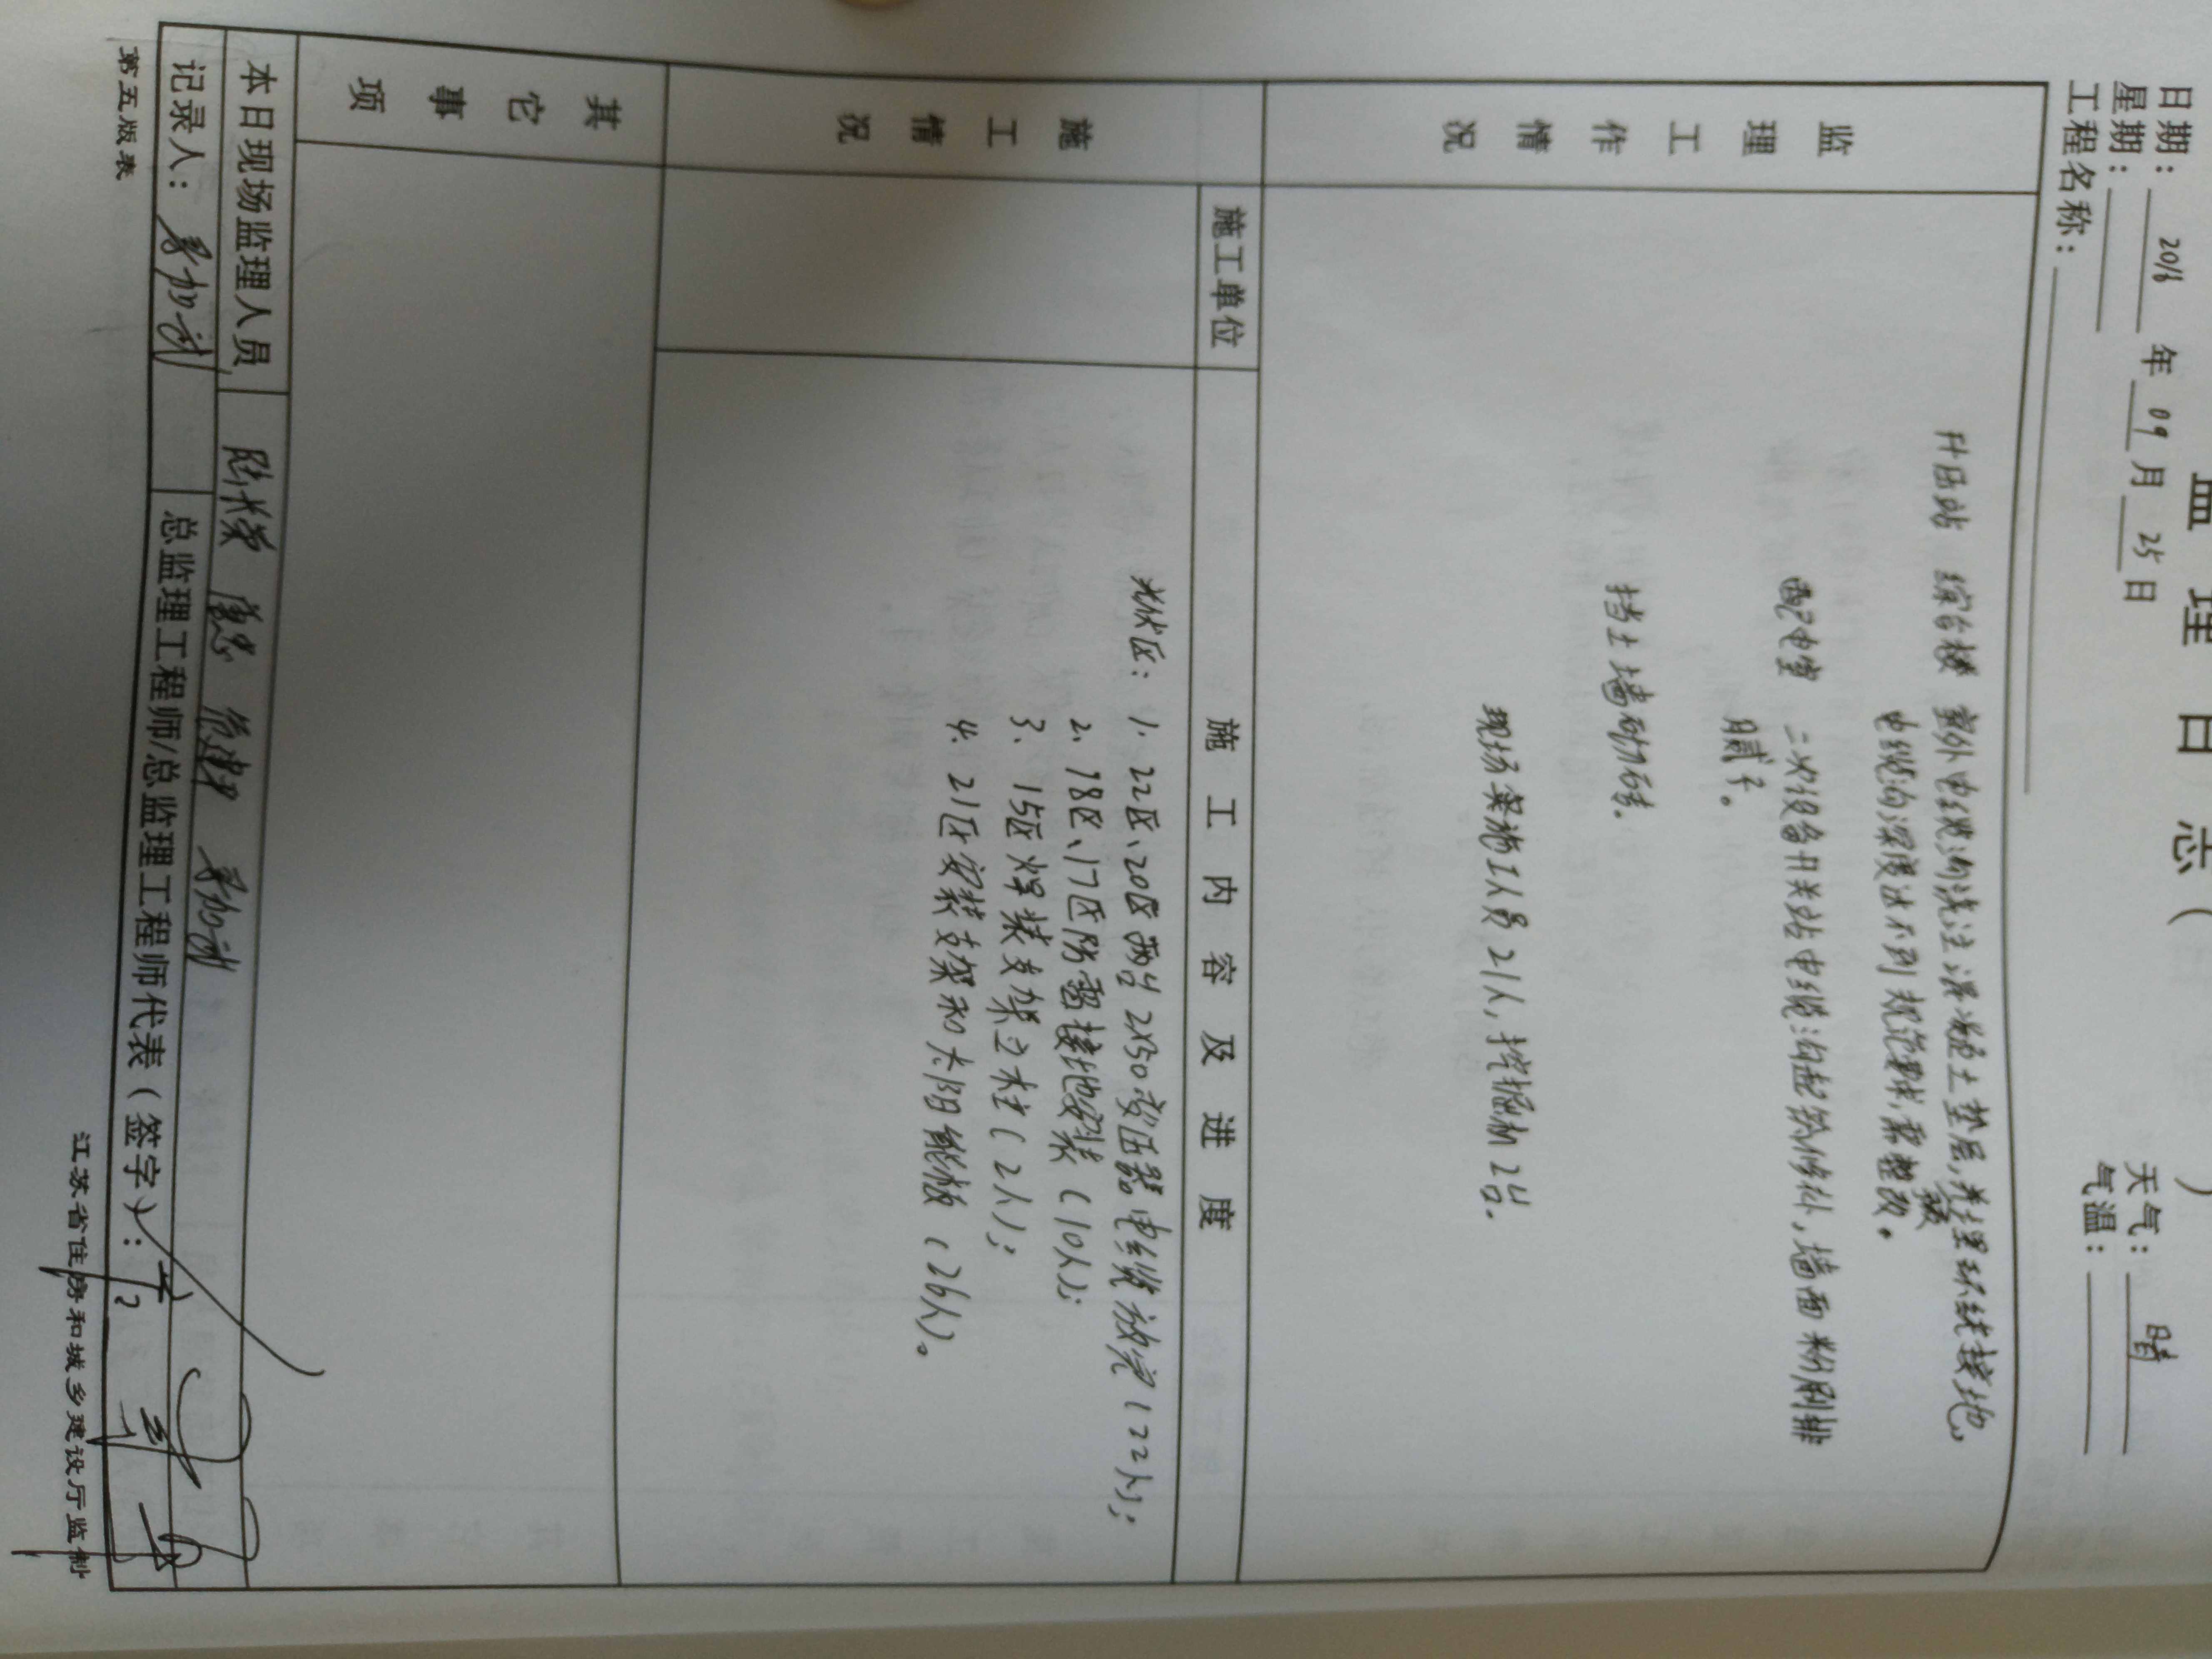 监理日志（ ）
日期：2018年09月25日 天气：晴
星期： 气温：
工程名称：
监理工作情况
升压站 综合楼 室外电缆沟浇注混凝土垫层，并埋环线接地。
电缆沟深度达不到规范要求，需整改。
配电室 二次设备开关站电缆沟起筋修补，墙面粉刷
腻子。
挡土墙砌砖。
现场实施工人员21人，挖掘机2台。
施工情况
施工单位 施工内容及进度
光伏区：1. 22区、20区两台2X50变压器电缆放完（22人）；
2、18区、17区防雷接地安装（10人）；
3、15区焊装支架立柱（2人）；
4. 21区安装支架和太阳能板（26人）。
其它事项
本日现场监理人员
记录人： 总监理工程师/总监理工程师代表（签字）：
第五版表 江苏省住房和城乡建设厅监制